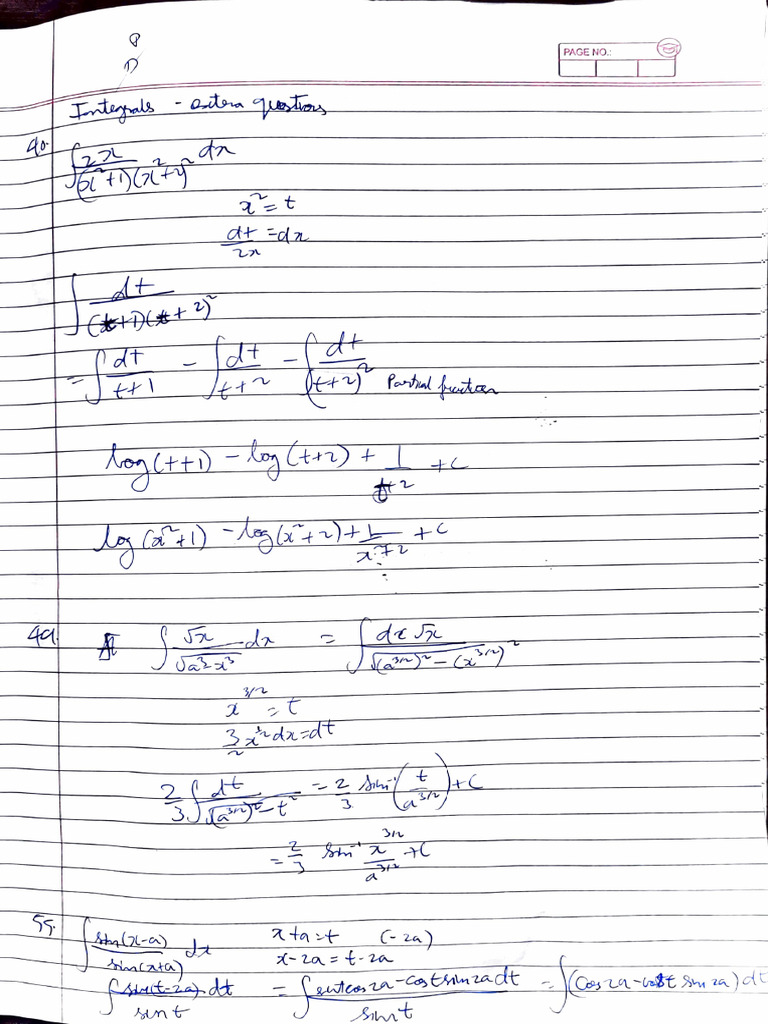 PAGE NO.:
Integrals - extra questions
40. ∫ 2x / (x²+1)(x²+2)² dx
x² = t
dt / 2x = dx
∫ dt / (t+1)(t+2)²
= ∫ dt / t+1 - ∫ dt / t+2 - ∫ dt / (t+2)² Partial fraction
log(t+1) - log(t+2) + 1 / t+2 + C
log(x²+1) - log(x²+2) + 1 / x²+2 + C
49. ∫ √x / √a³-x³ dx = ∫ dx √x / √(a^3/2)² - (x^3/2)²
x^3/2 = t
3/2 x^1/2 dx = dt
2/3 ∫ dt / √(a^3/2)² - t² = 2/3 sin⁻¹ (t / a^3/2) + C
= 2/3 sin⁻¹ x^3/2 / a^3/2 + C
55. ∫ sin(x-a) / sin(x+a) dx x+a = t (-2a)
x-2a = t-2a
∫ sin(t-2a) dt / sin t = ∫ sint cos2a - cost sin2a dt / sin t = ∫ (cos2a - cott sin 2a) dt